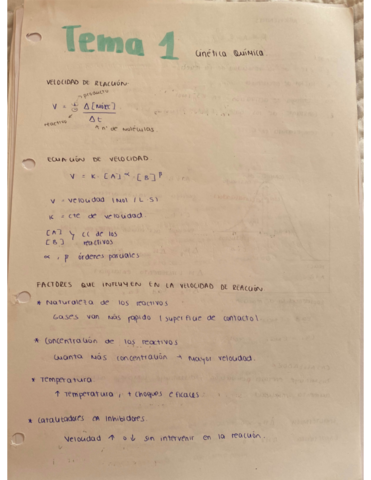 Tema 1 Cinética Química
VELOCIDAD DE REACCIÓN
+ producto
V = ± Δ[ ]
Δt
reactivo nº de moléculas
ECUACIÓN DE VELOCIDAD
V = K · [A]^α · [B]^β
V = velocidad (mol / L · s)
K = cte de velocidad
[A] y CC de los
[B] reactivos
α, β órdenes parciales
FACTORES QUE INFLUYEN EN LA VELOCIDAD DE REACCIÓN
* Naturaleza de los reactivos
Gases van más rápido (superficie de contacto).
* Concentración de los reactivos
Cuanta más concentración → mayor velocidad.
* Temperatura
↑ Temperatura, + choques eficaces.
* Catalizadores inhibidores.
Velocidad ↑ o ↓ sin intervenir en la reacción.